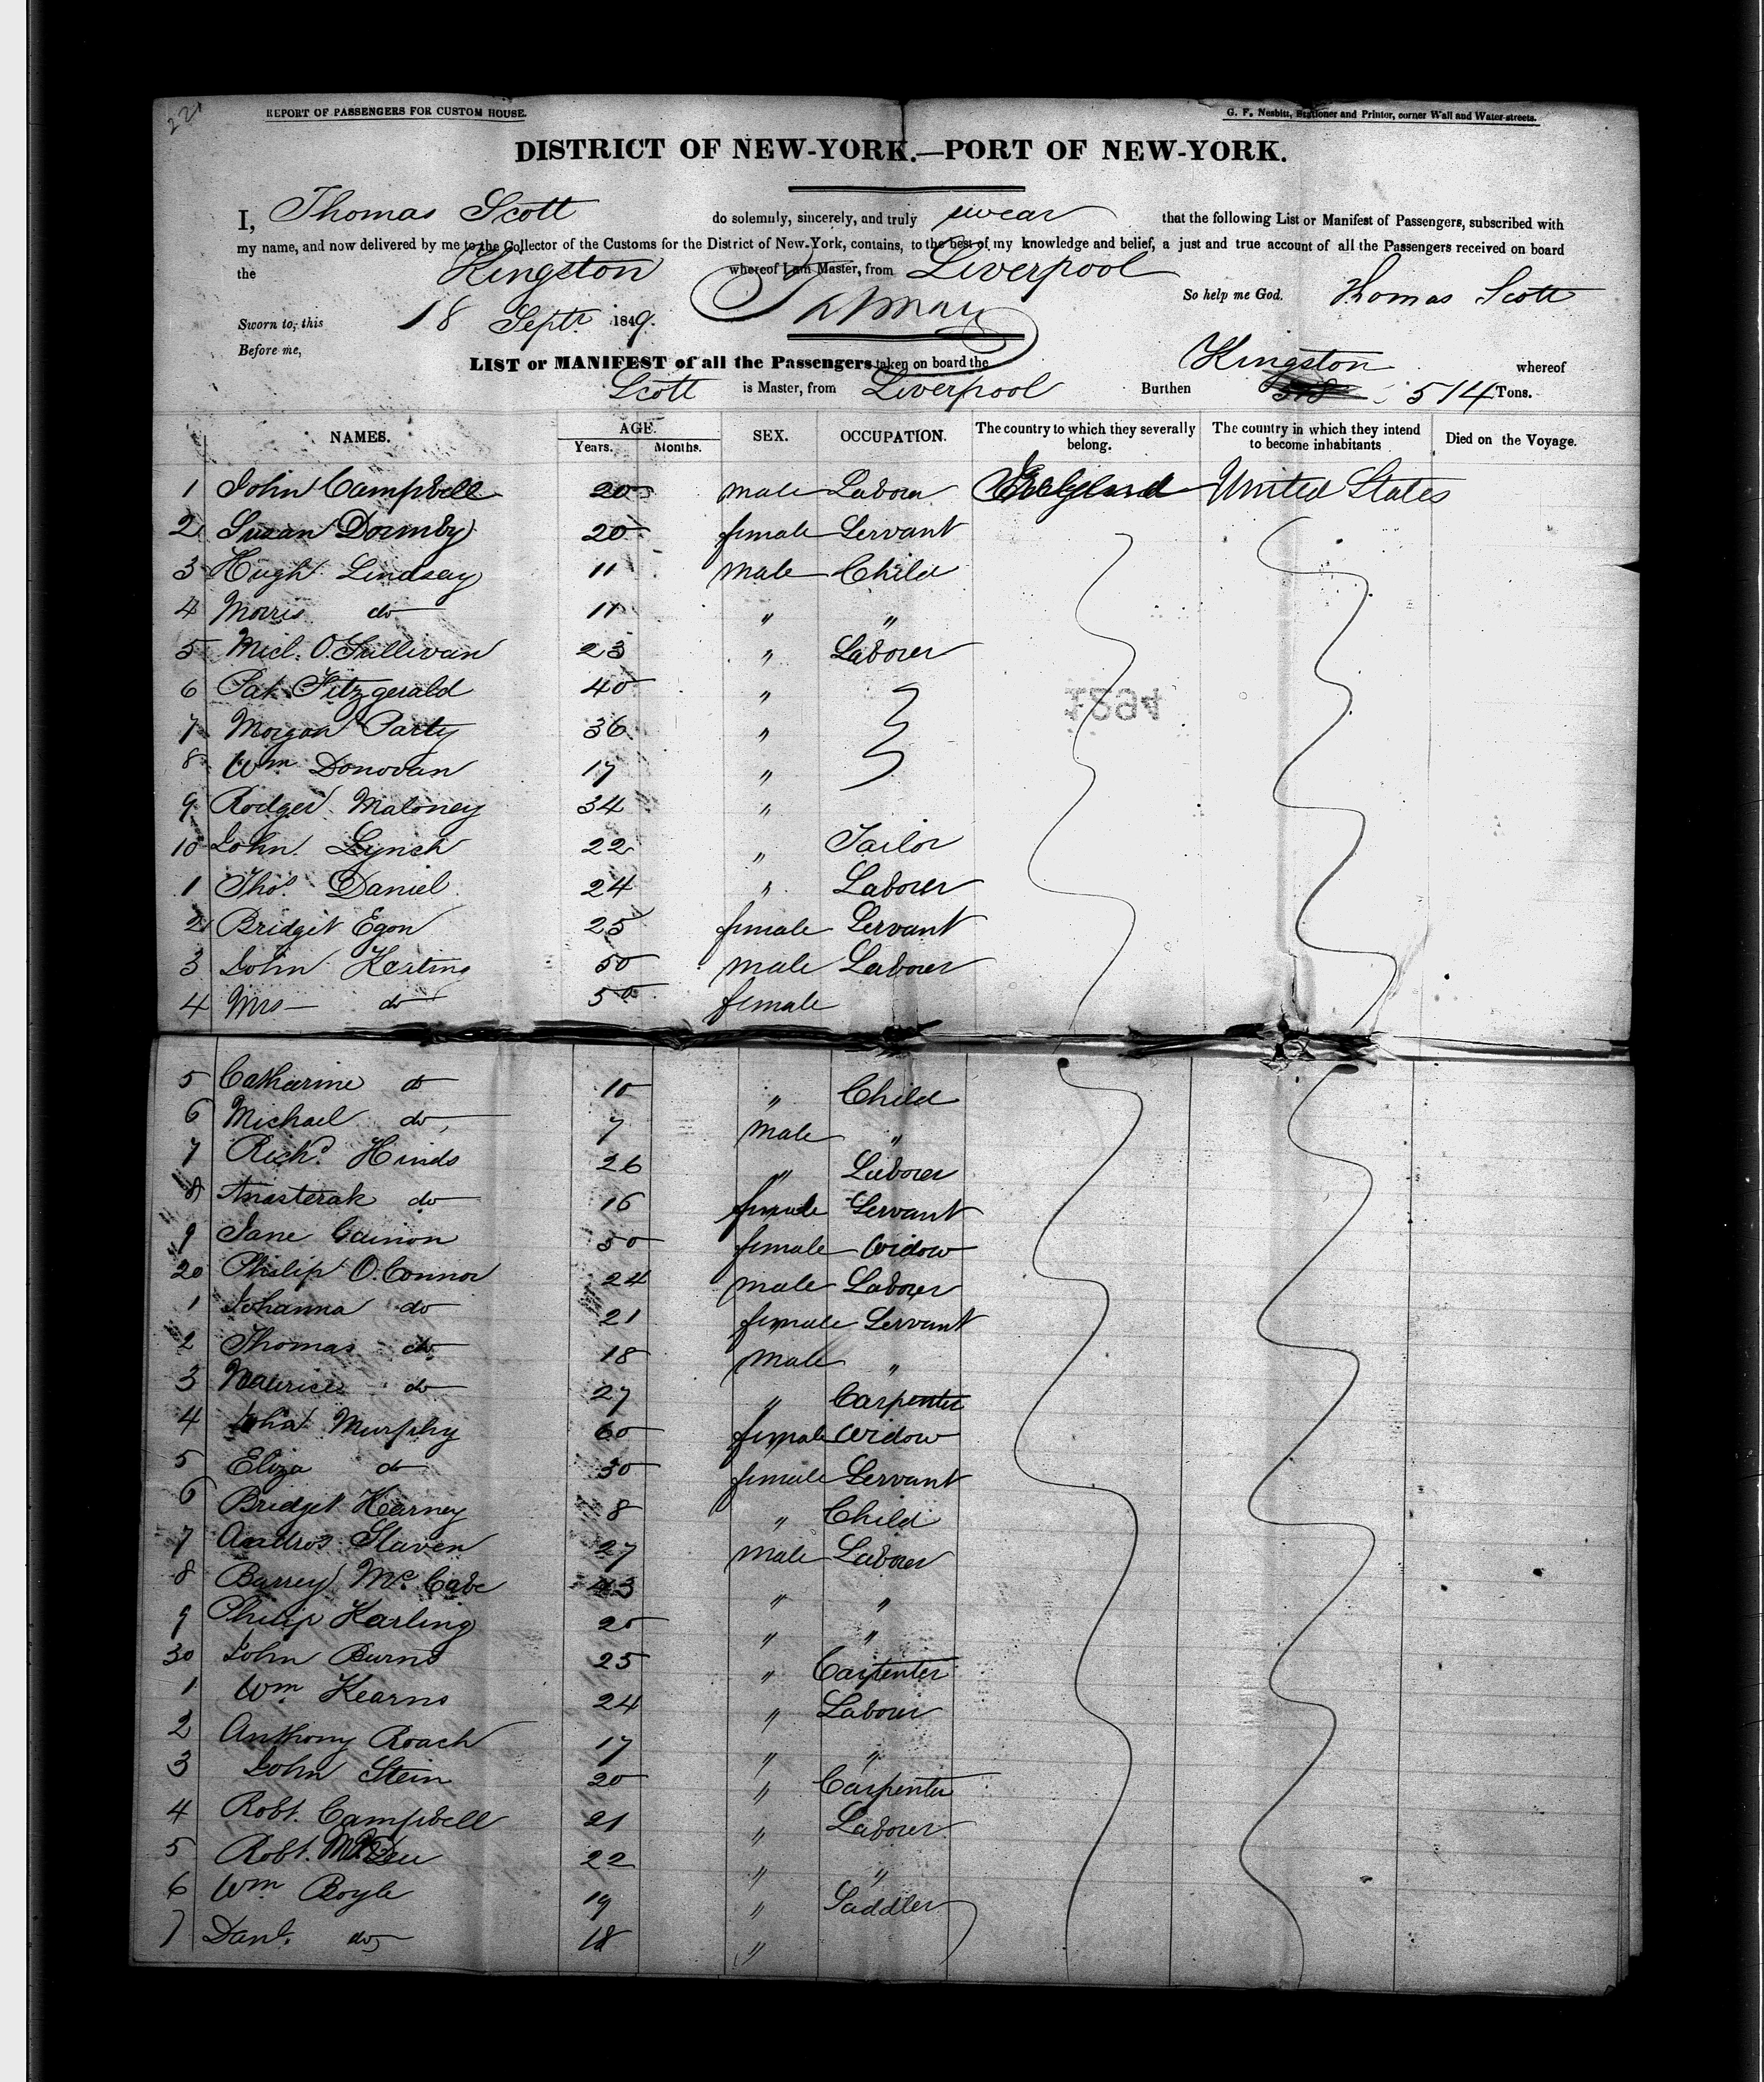 221
REPORT OF PASSENGERS FOR CUSTOM HOUSE.
G. F. Nesbitt, Stationer and Printer, corner Wall and Water-streets.
DISTRICT OF NEW-YORK.—PORT OF NEW-YORK.
I, Thomas Scott do solemnly, sincerely, and truly swear that the following List or Manifest of Passengers, subscribed with
my name, and now delivered by me to the Collector of the Customs for the District of New-York, contains, to the best of my knowledge and belief, a just and true account of all the Passengers received on board
the Kingston whereof I am Master, from Liverpool
So help me God. Thomas Scott
Sworn to, this 18 Septr 1849.
Before me,
LIST or MANIFEST of all the Passengers taken on board the Kingston whereof
Scott is Master, from Liverpool Burthen 514 Tons.
NAMES. AGE. Years. Months. SEX. OCCUPATION. The country to which they severally belong. The country in which they intend to become inhabitants Died on the Voyage.
1 John Campbell 20 male Labour United States
2 Susan Dormby 20 female Servant
3 Hugh Lindsay 11 male Child
4 Morris do 11 " "
5 Micl. O'Sullivan 23 " Laborer
6 Pat Fitzgerald 40 "
7 Morgan Party 36 "
8 Wm Donovan 17 "
9 Rodger Maloney 34 "
10 John Lynch 22 " Tailor
1 Thos Daniel 24 " Laborer
2 Bridget Egon 25 female Servant
3 John Keating 50 male Laborer
4 Mrs — do 50 female
5 Catharine do 10 " Child
6 Michael do 7 male "
7 Richd Hinds 26 " Laborer
8 do 16 female Servant
9 Jane Gainon 50 female Widow
20 Philip O.Connor 24 male Laborer
1 Johanna do 21 female Servant
2 Thomas do 18 male "
3 Maurice do 27 " Carpenter
4 Murphy 60 female Widow
5 Eliza do 30 female Servant
6 Bridget Kearney 8 " Child
7 Slaven 27 male Laborer
8 Barrey McCabe 43 " "
9 Philip Karling 20 " "
30 John Burns 25 " Carpenter
1 Wm Kearns 24 " Laborer
2 Anthony Roach 17 " "
3 John Stein 20 " Carpenter
4 Robt. Campbell 21 " Laborer
5 Robt. 22 " "
6 Wm Boyle 19 " Saddler
7 Danl. do 18 "